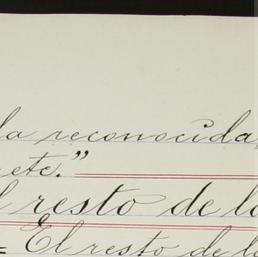 la reconocida,
etc."
l resto de la
= El resto de la